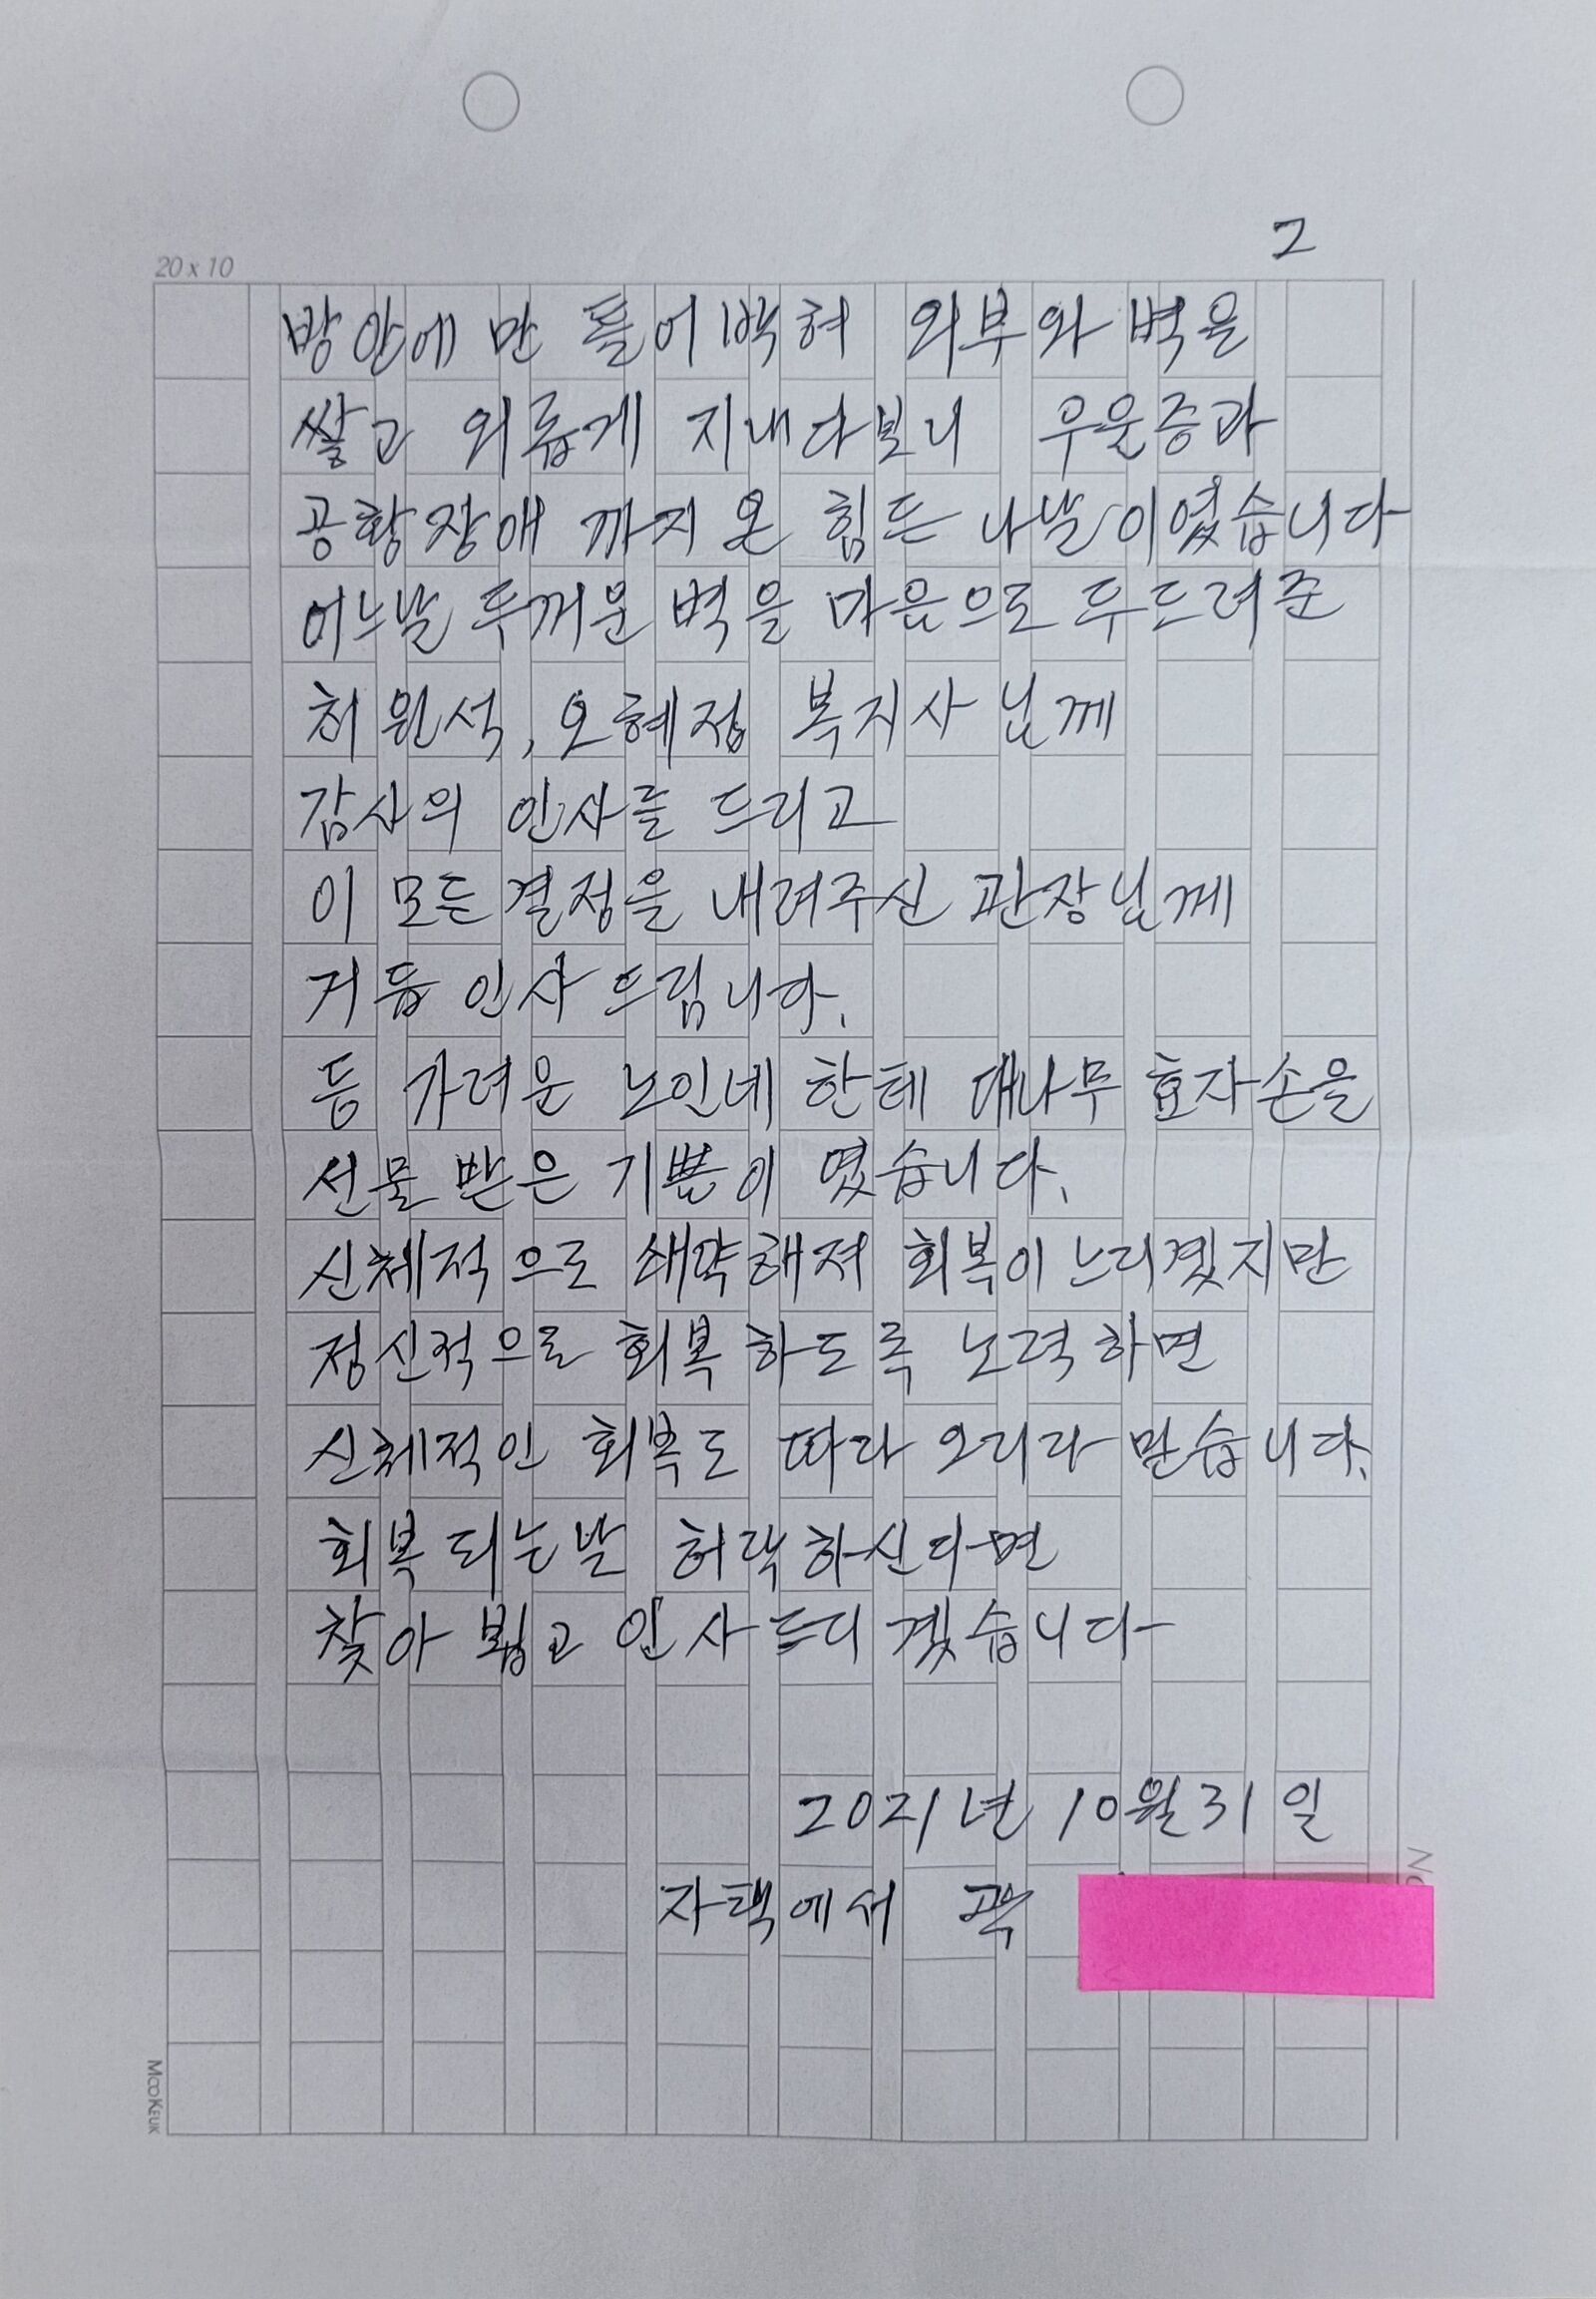 2
20 x 10
방안에 만 틀어백혀 외부와 벽을
쌓고 외롭게 지내다보니 우울증과
공황장애 까지 온 힘든 나날이였습니다
어느날 두꺼운 벽을 마음으로 두드려준
최원석, 오혜정 복지사 님께
감사의 인사를 드리고
이 모든 결정을 내려주신 관장님께
거듭 인사 드립니다.
등 가려운 노인네 한테 대나무 효자손을
선물 받은 기쁨이 였습니다.
신체적으로 쇄약해져 회복이 느리겠지만
정신적으로 회복 하도록 노력하면
신체적인 회복도 따라 오리라 믿습니다.
회복 되는날 허락하신다면
찾아 뵙고 인사 드리 겠습니다
2021년 10월 31일
자택에서 곽
MOOKEUK